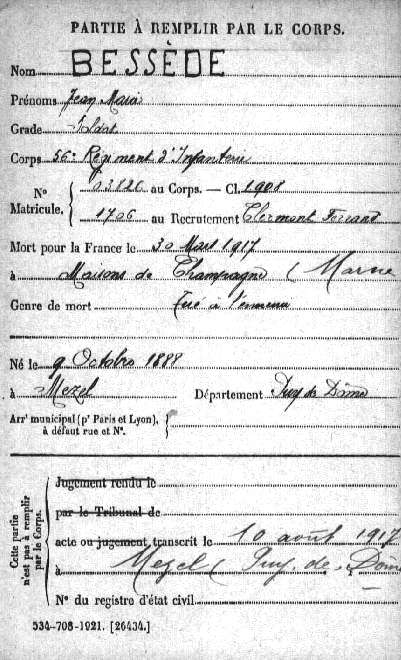 PARTIE À REMPLIR PAR LE CORPS.
Nom BESSÈDE
Prénoms Jean Marie
Grade Soldat
Corps 56e Régiment d'Infanterie
N° Matricule. { au Corps. — Cl. 1908
1706 au Recrutement Clermont Ferrand
Mort pour la France le 30 Mars 1917
à Maisons de Champagne (Marne
Genre de mort Tué à l'ennemi
Né le 9 Octobre 1888
à Mezel Département Puy de Dôme
Arrt municipal (pr Paris et Lyon),
à défaut rue et N°.
Cette partie n'est pas à remplir par le Corps.
Jugement rendu le
par le Tribunal de
acte ou jugement transcrit le 10 août 1917
à Mezel (Puy de Dome
N° du registre d'état civil
534-708-1921. [26434.]